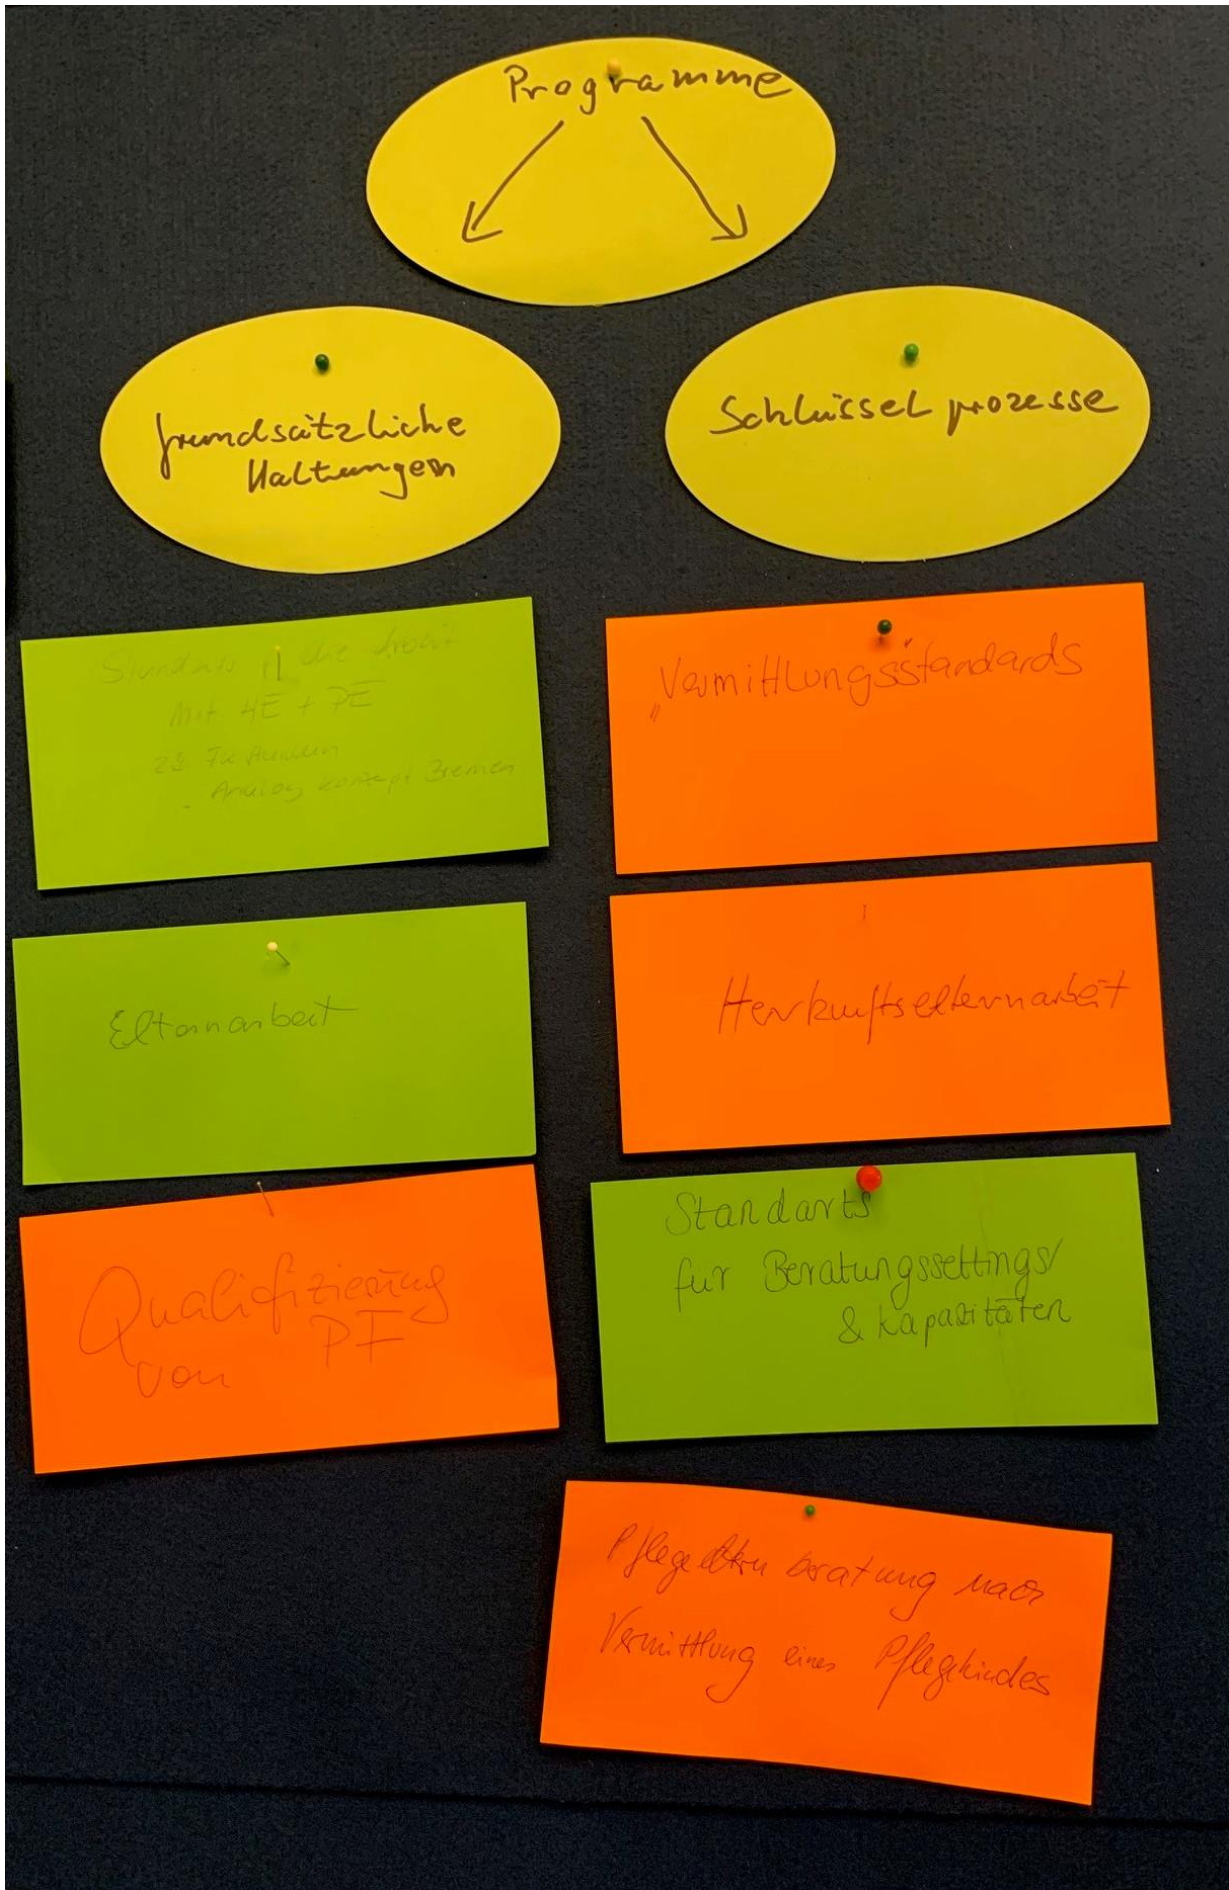 Programme
grundsätzliche
Haltungen
Standarts f. die Arbeit
Mit HE + PE
Analog Konzept Bremen
Elternarbeit
Qualifizierung
von PF
Schlüsselprozesse
"Vermittlungsstandards"
Herkunftselternarbeit
Standarts
für Beratungssettings/
& Kapazitäten
Pflegeelternberatung nach
Vermittlung eines Pflegekindes